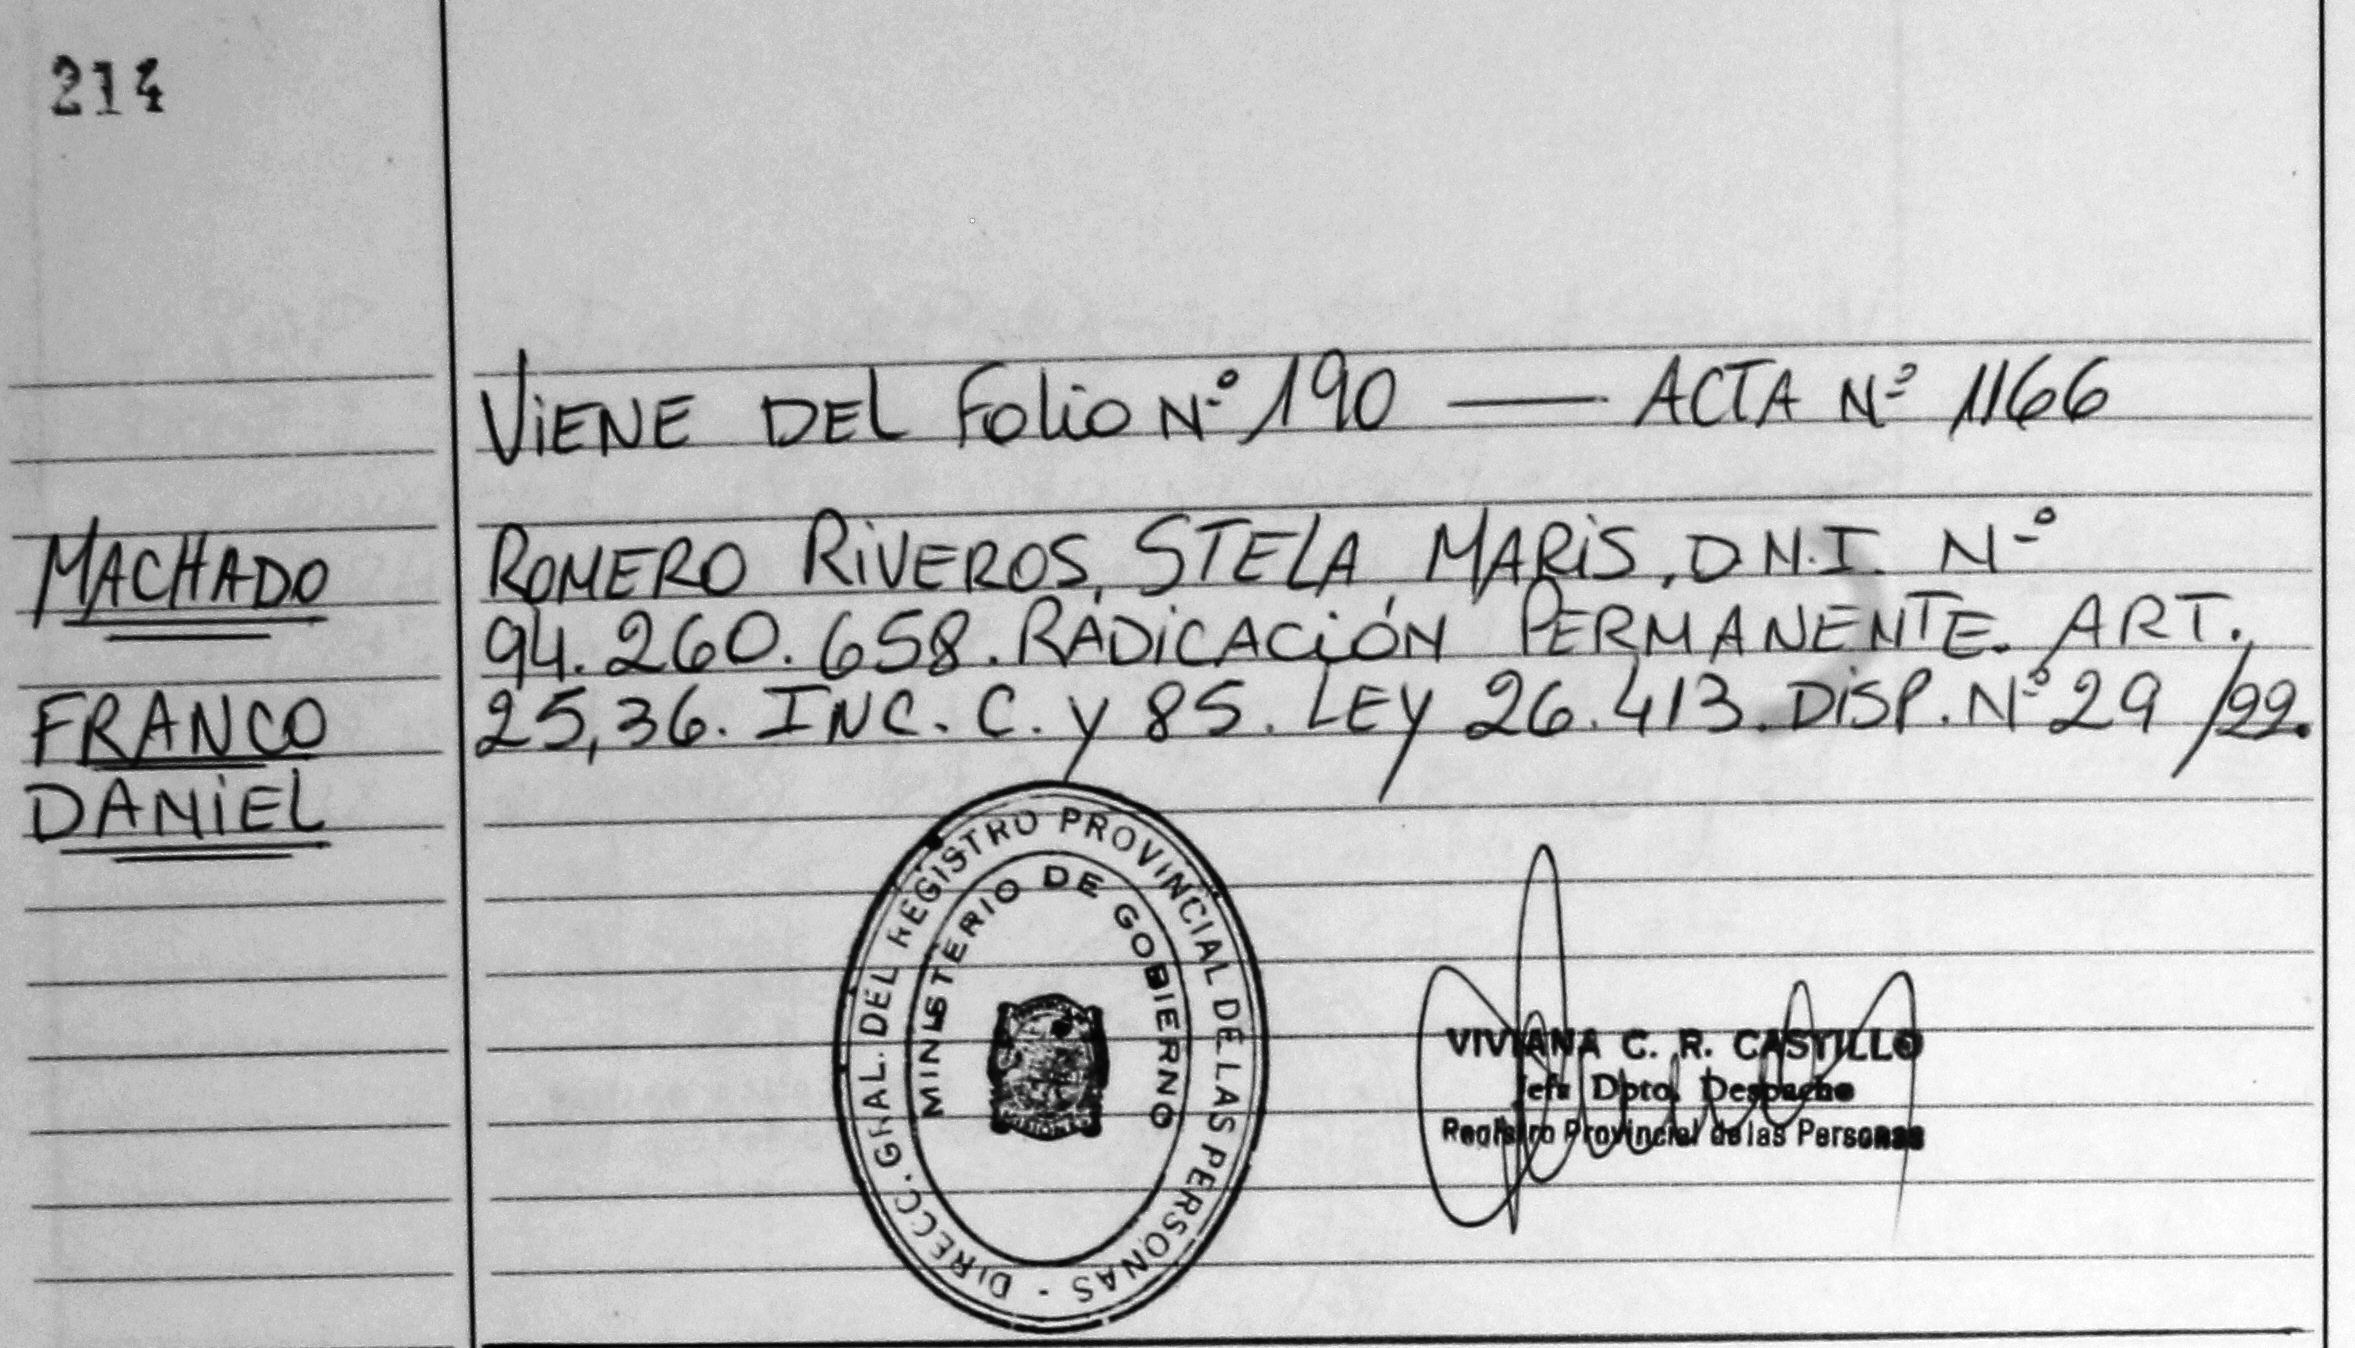 214
VIENE DEL Folio Nº 190 — ACTA Nº 1166
MACHADO
FRANCO
DANIEL
ROMERO RIVEROS, STELA MARIS, D.N.I. Nº
94.260.658. RADICACIÓN PERMANENTE. ART.
25,36. INC. C. y 85. LEY 26.413. DISP. Nº 29 /22.
DIRECC. GRAL. DEL REGISTRO PROVINCIAL DE LAS PERSONAS -
MINISTERIO DE GOBIERNO
VIVIANA C. R. CASTILLO
Jefa Dpto. Despacho
Registro Provincial de las Personas